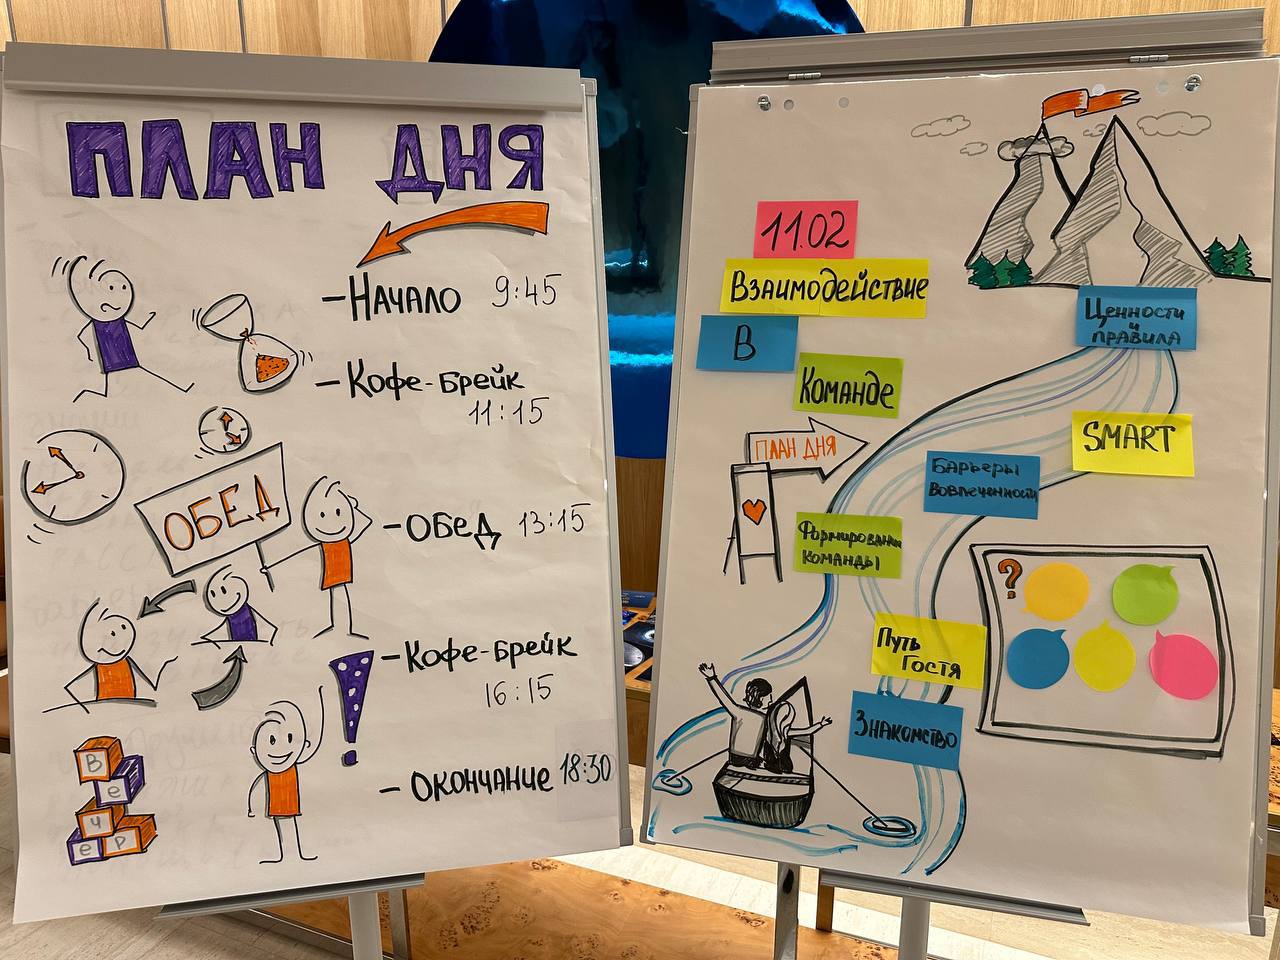 ПЛАН ДНЯ
-НАЧАЛО 9:45
-КОФЕ-БРЕЙК
11:15
ОБЕД
-ОБЕД 13:15
-КОФЕ-БРЕЙК
16:15
-ОКОНЧАНИЕ 18:30
В
е
ч
е р
11.02
ВЗАИМОДЕЙСТВИЕ
В
КОМАНДЕ
ПЛАН ДНЯ
ЦЕННОСТИ
И
ПРАВИЛА
SMART
БАРЬЕРЫ
ВОВЛЕЧЕННОСТИ
ФОРМИРОВАНИЕ
КОМАНДЫ
?
ПУТЬ
ГОСТЯ
ЗНАКОМСТВО